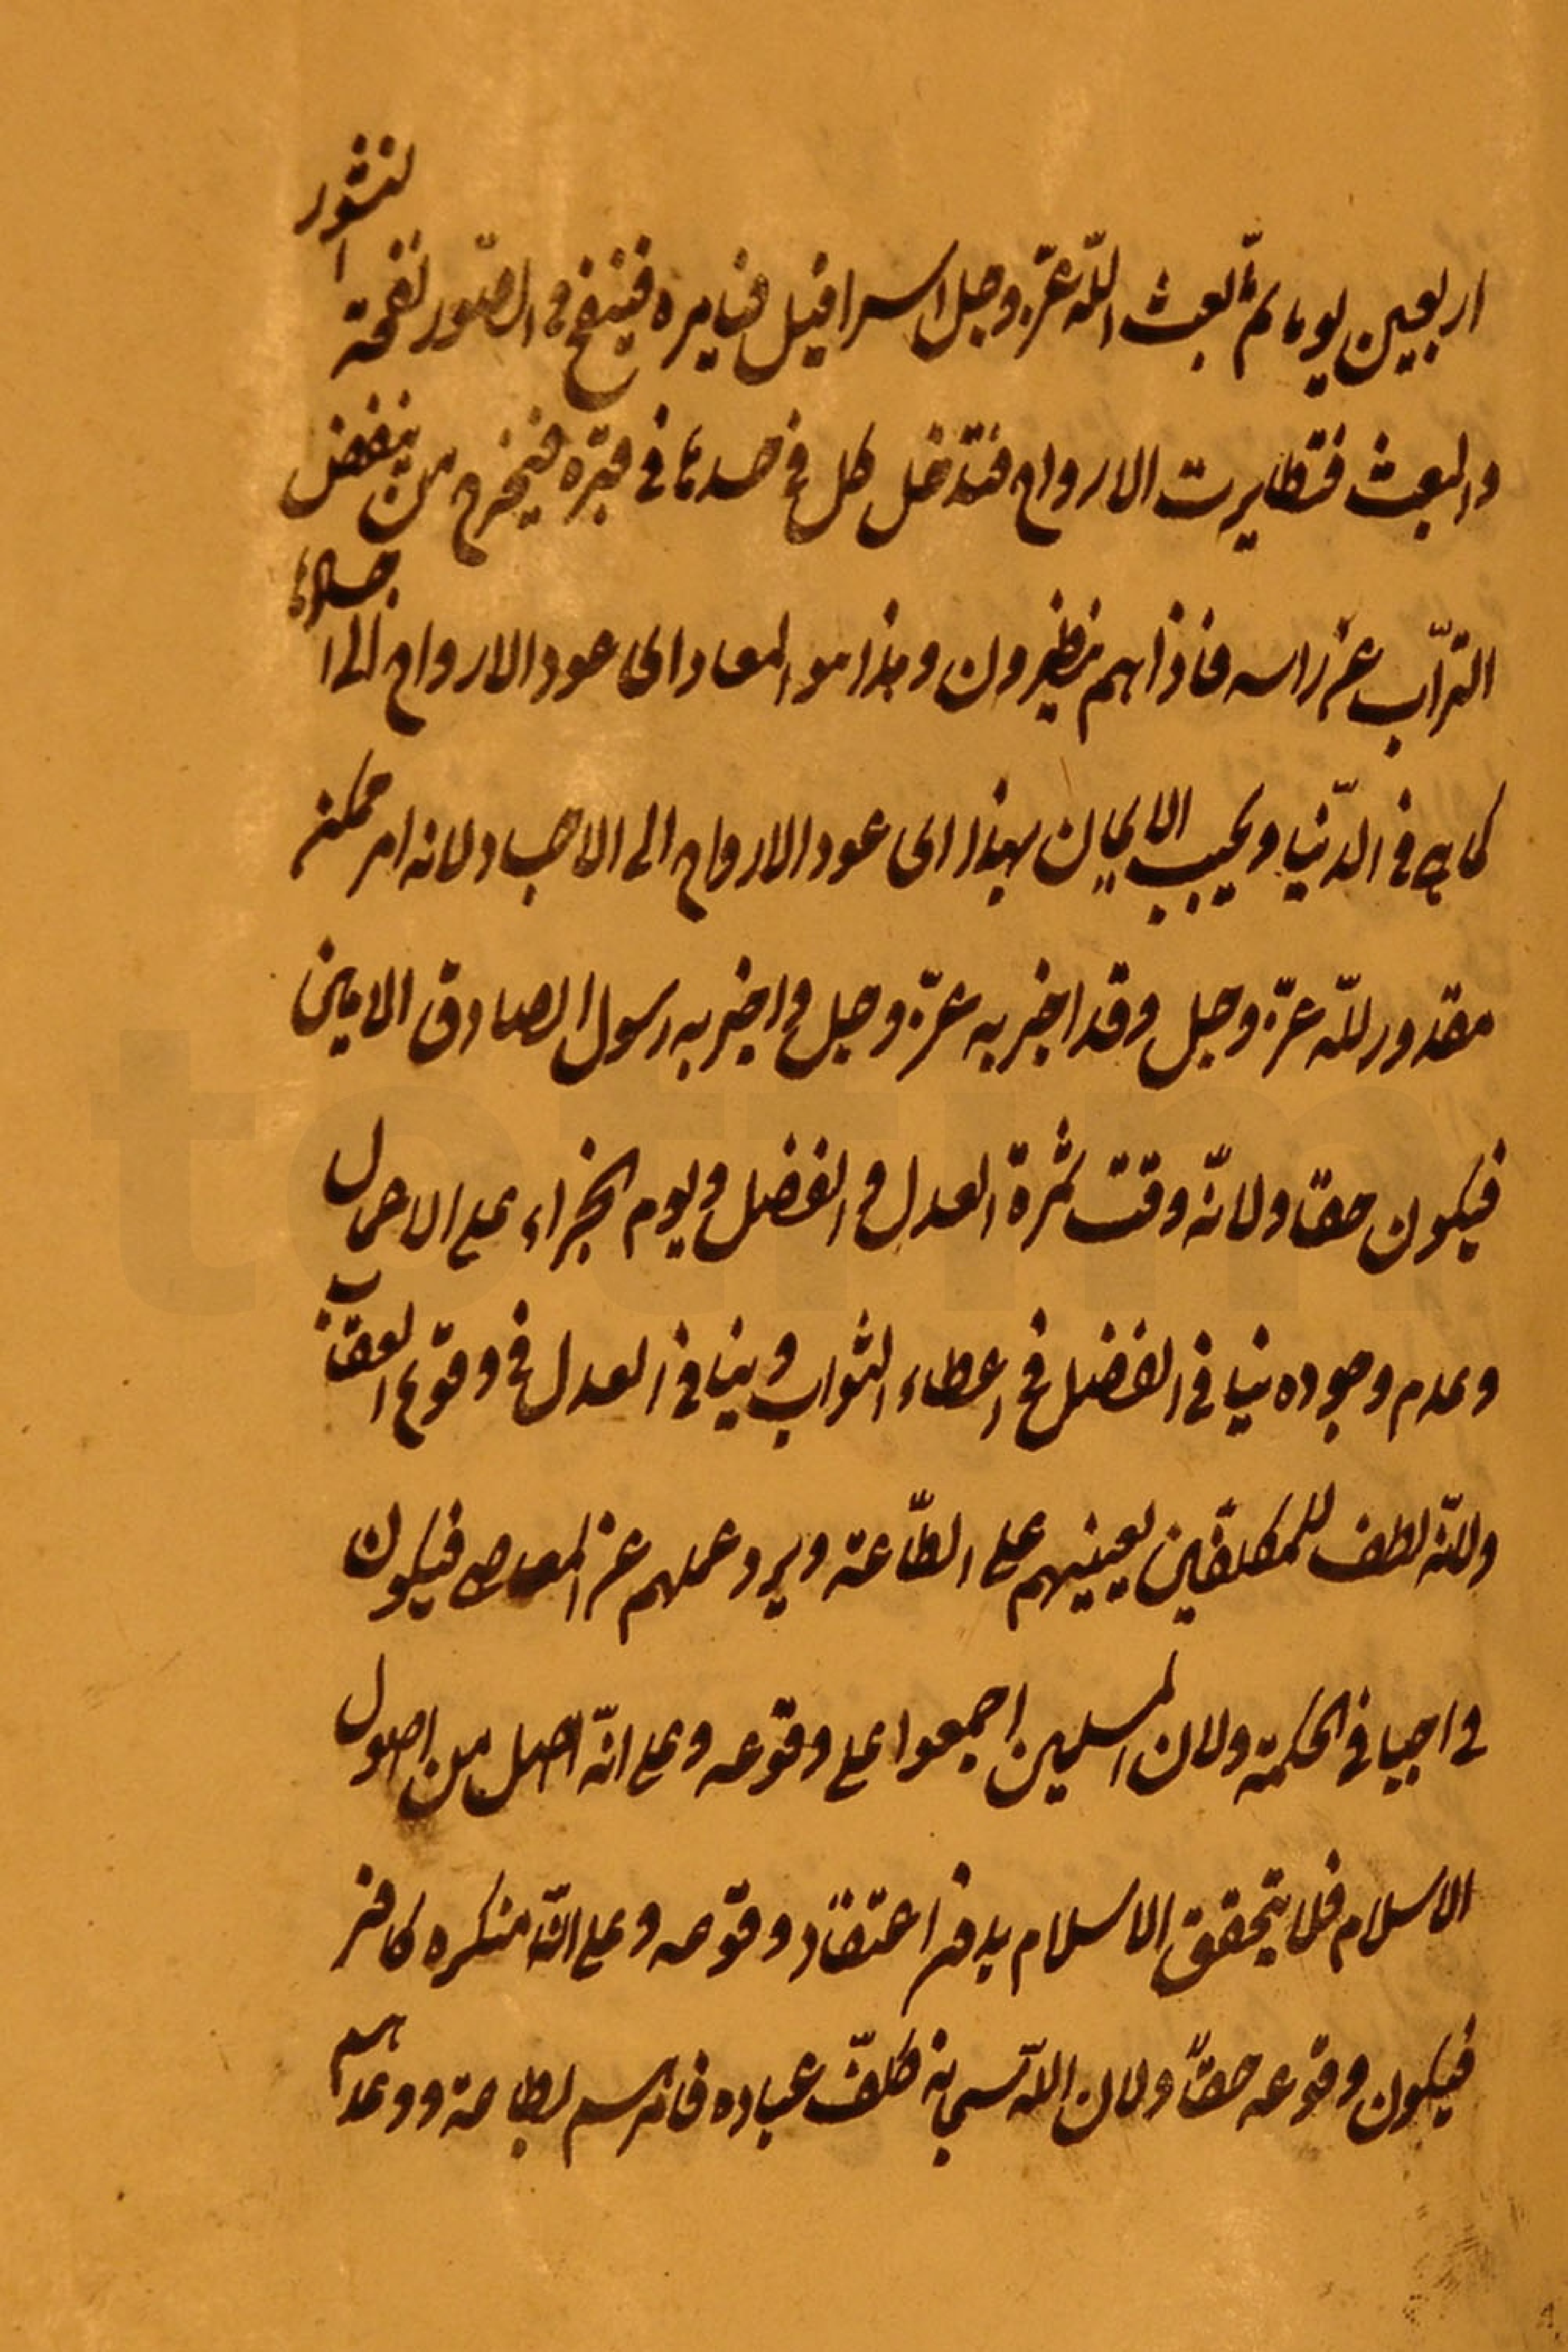 اربعين يوما ثمّ يبعث اللّه عزّ وجل اسرافيل فيامره فينفخ في الصّور نفخة النشور
والبعث فتطايرت الارواح فتدخل كل في جسدها في قبره فيخرج من ينفض
التراب عن راسه فاذا هم ينظرون وهذا هو المعاد اى عود الارواح الى اجسادها
كما هي في الدّنيا ويجب الايمان بهذا اى عود الارواح الى الاجساد لانه امر ممكن
مقدور للّه عزّ وجل وقد اخبر به عزّ وجل و اخبر به رسول الصادق الامين
فيكون حقا ولانّه وقت ثمرة العدل و الفضل و يوم الجزاء على الاعمال
وعدم وجوده ينافى الفضل في اعطاء الثواب وينافى العدل في وقوع العقاب
ولانّه لطف للمكلفين يعينهم على الطّاعة ويردعهم عن المعاصى فيكون
واجبا في الحكمة ولان المسلمين اجمعوا على وقوعه وعلى انّه اصل من اصول
الاسلام فلا يتحقق الاسلام بدون اعتقاد وقوعه وعلى انّه منكره كافر
فيكون وقوعه حقّا ولان اللّه سبحانه كلّف عباده فامرهم بطاعته ووعدهم
totfim